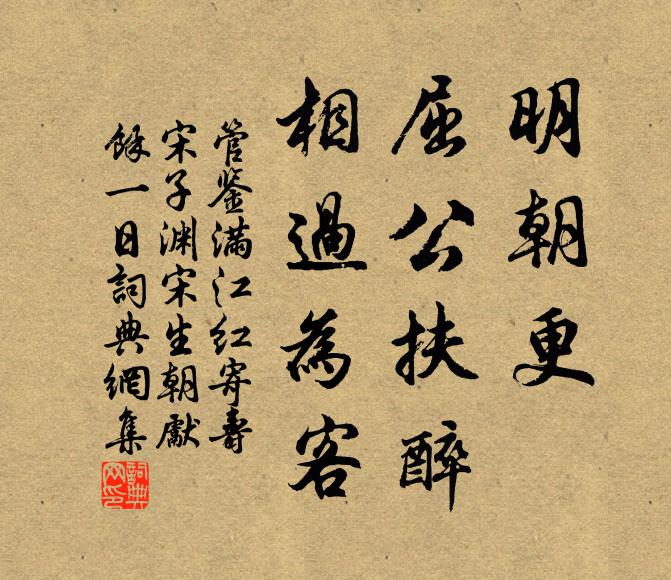 明朝更
屈公扶醉
相過為客
管鉴满江红寄壽
宋子渊宋生朝獻
餘一日詞典網集
詞典网印